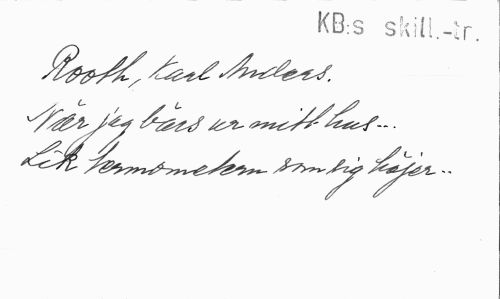 KB:s skill.-tr.
Rooth, Karl Anders.
När jag bärs ur mitt hus...
Lik termometern som sig höjer..